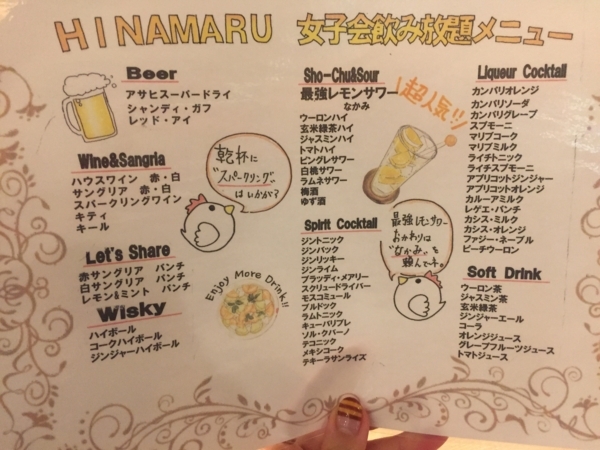 HINAMARU 女子会飲み放題メニュー
Beer
アサヒスーパードライ
シャンディ・ガフ
レッド・アイ
Wine&Sangria
ハウスワイン 赤・白
サングリア 赤・白
スパークリングワイン
キティ
キール
乾杯に
"スパークリング"
はいかが?
Let's Share
赤サングリア パンチ
白サングリア パンチ
レモン&ミント パンチ
Wisky
ハイボール
コークハイボール
ジンジャーハイボール
Enjoy More Drink!!
Sho-Chu&Sour
最強レモンサワー
なかみ
超人気!!
ウーロンハイ
玄米緑茶ハイ
ジャスミンハイ
トマトハイ
ピングレサワー
白桃サワー
ラムネサワー
梅酒
ゆず酒
Spirit Cocktail
ジントニック
ジンバック
ジンリッキー
ジンライム
ブラッディ・メアリー
スクリュードライバー
モスコミュール
ブルドック
ラムトニック
キューバリブレ
ソル・クバーノ
テコニック
メキシコーク
テキーラサンライズ
最強レモンサワー
おかわりは
"なかみ"を
頼んでネ。
Liqueur Cocktail
カンパリオレンジ
カンパリソーダ
カンパリグレープ
スプモーニ
マリブコーク
マリブミルク
ライチトニック
ライチスプモーニ
アプリコットジンジャー
アプリコットオレンジ
カルーアミルク
レゲエ・パンチ
カシス・ミルク
カシス・オレンジ
ファジー・ネーブル
ピーチウーロン
Soft Drink
ウーロン茶
ジャスミン茶
玄米緑茶
ジンジャーエール
コーラ
オレンジジュース
グレープフルーツジュース
トマトジュース